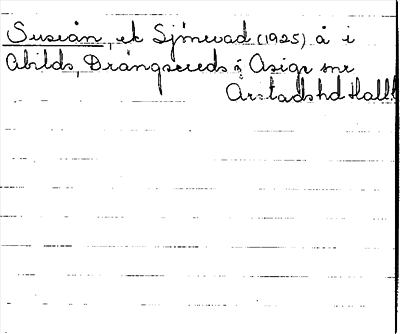 Suseån, ek Sjönevad (1925) å i
Abilds, Drängsereds & Asige snr
Årstads hd Hall